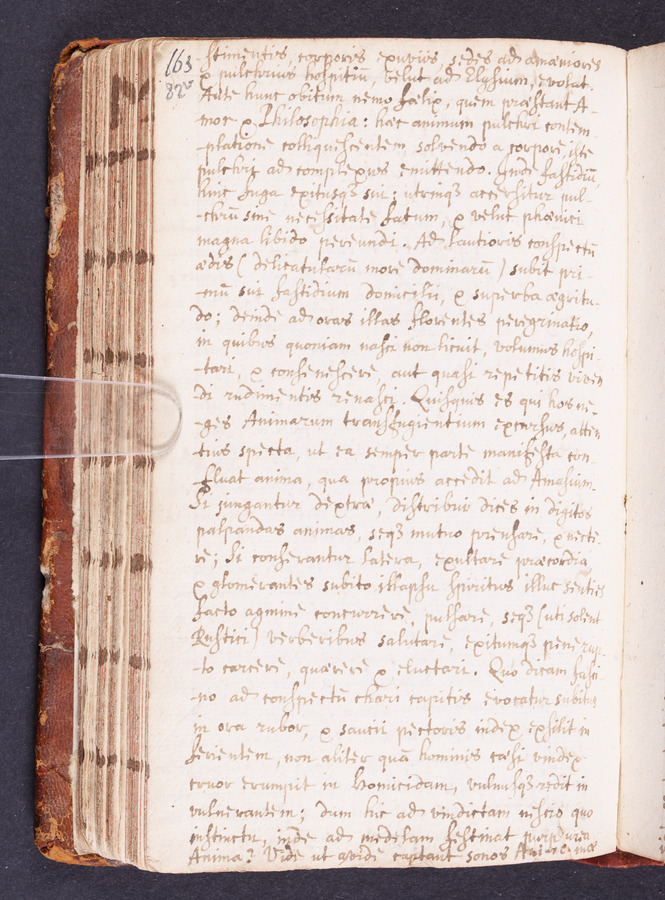 163
82v
-stimentis, corporis exuviis, sedes ad amæniores
& pulchrius hospitiũ, velut ad Elysium, evolat.
Ante hunc obitum nemo fælix, quem præstant A-
mor & Philosophia: hæc animum pulchri contem-
-platione colliquescentem solvendo a corpore, iste
pulchris ad complexus emittendo. Inde fastidiũ,
hinc fuga exitusqȝ sui; utrinqȝ accersitur pul-
-chrũ sine necessitate fatum, & velut phœnici
magna libido pereundi. Ad lautioris conspectũ
ædis (delicatularũ more dominarũ) subit pri-
-mũ sui fastidium domicilii, & superba ægritu-
do; deinde ad oras illas florentes peregrinatio,
in quibus quoniam nasci non licuit, volumus hospi-
-tari, & consenescere, aut quasi repetitis viven
di rudimentis renasci. Quisquis es qui hos ne-
-ges Animarum transfugientium excursus, atten
tius specta, ut ea semper parte manifesta con-
fluat anima, qua propius accedit ad Amasium.
Si jungantur dextræ, distribui dices in digitos
palpandas animas, seqȝ mutuo prensare, & necte
re; Si conferantur latera, exultare præcordia,
& glomerantes subito illapsu spiritus illuc senties
facto agmine concurrere, pulsare, seqȝ (uti solent
Rustici) verberibus salutare, exitumqȝ pene rup-
-to carcere, quærere & eluctari. Quo dicam fasci-
-no ad conspectũ chari capitis evocatur subitus
in ora rubor, & saucii pectoris index exsilit in
ferientem, non aliter quã hominis cæsi vindex
cruor erumpit in homicidam, vulnusqȝ redit in
vulnerantem; dum hic ad vindictam nescio quo
instinctu, inde ad medelam festinat purpurea
Anima? Vide ut avide captant sonos